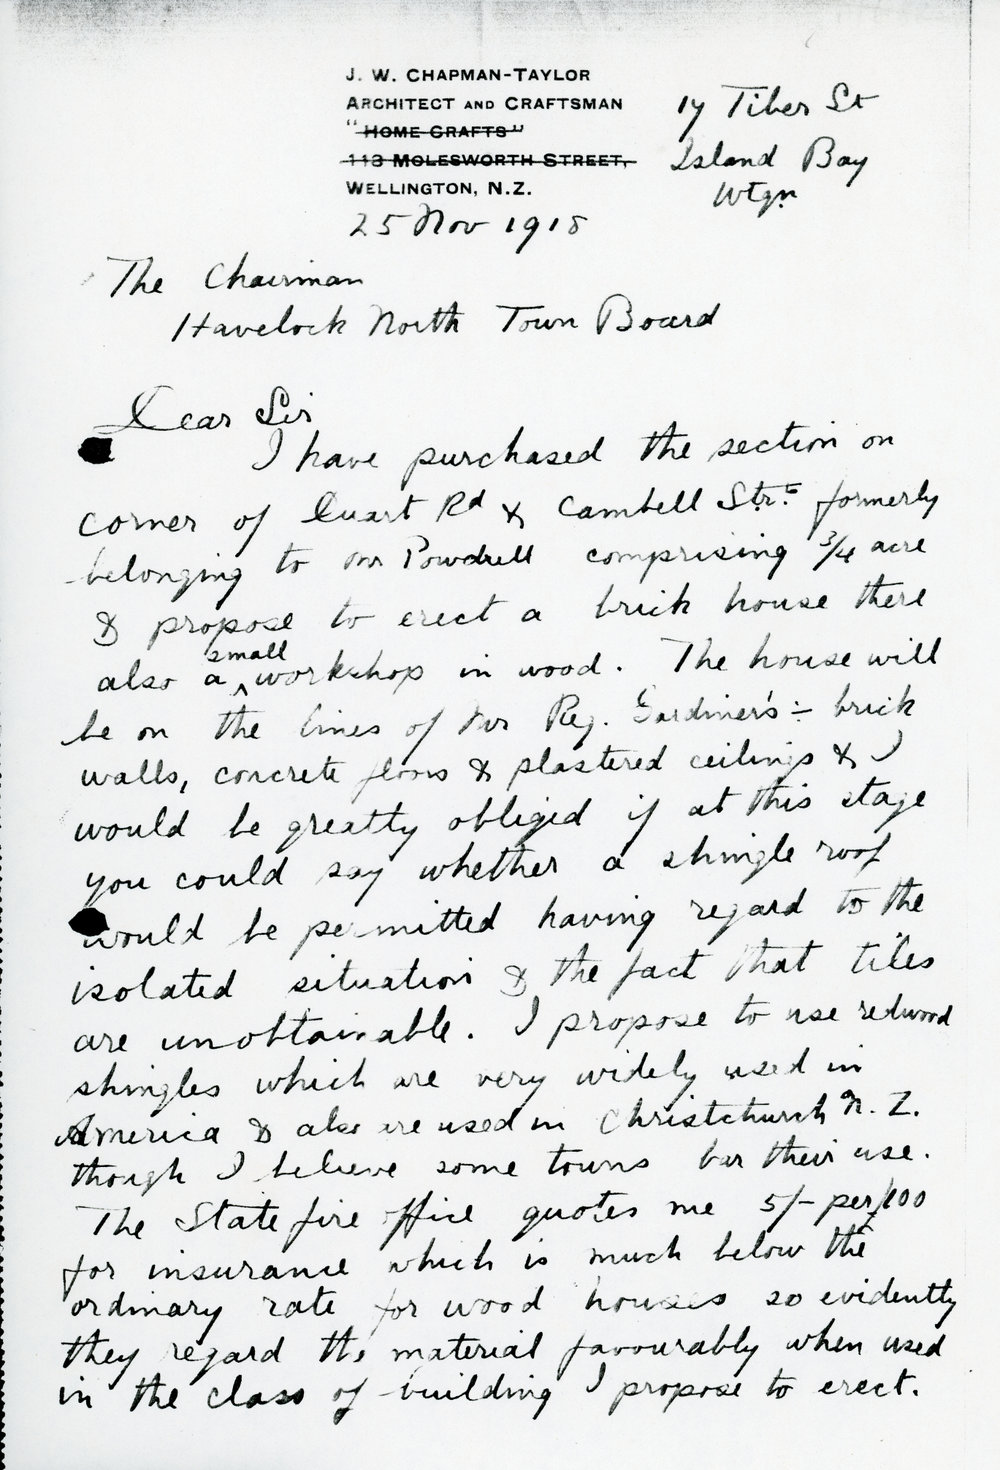 J. W. CHAPMAN-TAYLOR
ARCHITECT AND CRAFTSMAN
"HOME CRAFTS"
113 MOLESWORTH STREET,
WELLINGTON, N.Z.
17 Tiber St
Island Bay
Wtgn
25 Nov 1918
The Chairman
Havelock North Town Board
Dear Sir
I have purchased the section on
corner of Duart Rd & Cambell Strt formerly
belonging to Mr Powdrell comprising 3/4 acre
& propose to erect a brick house there
also a small workshop in wood. The house will
be on the lines of Mr Reg. Gardiner's :- brick
walls, concrete floors & plastered ceilings & I
would be greatly obliged if at this stage
you could say whether a shingle roof
would be permitted having regard to the
isolated situation & the fact that tiles
are unobtainable. I propose to use redwood
shingles which are very widely used in
America & also are used in Christchurch N.Z.
though I believe some towns bar their use.
The State fire office quotes me 5/- per £100
for insurance which is much below the
ordinary rate for wood houses so evidently
they regard the material favourably when used
in the class of building I propose to erect.